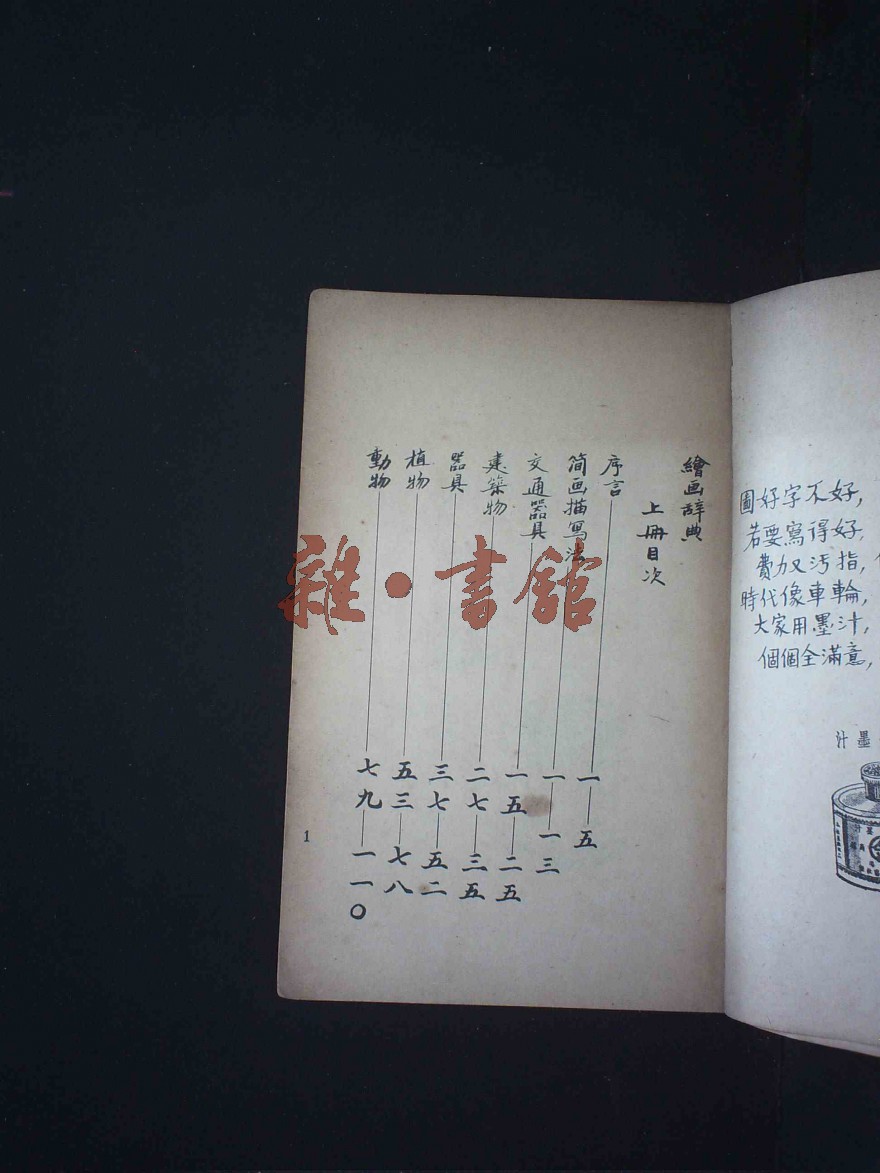 繪画辞典
上冊目次
序言 一—五
简画描寫法 一—一三
交通器具 一五—二五
建築物 二七—三五
器具 三七—五二
植物 五三—七八
動物 七九—一一〇
1
圖好字不好，
若要寫得好，
費力又汚指，
時代像車輪，
大家用墨汁，
個個全滿意，
汁墨
雜·書館